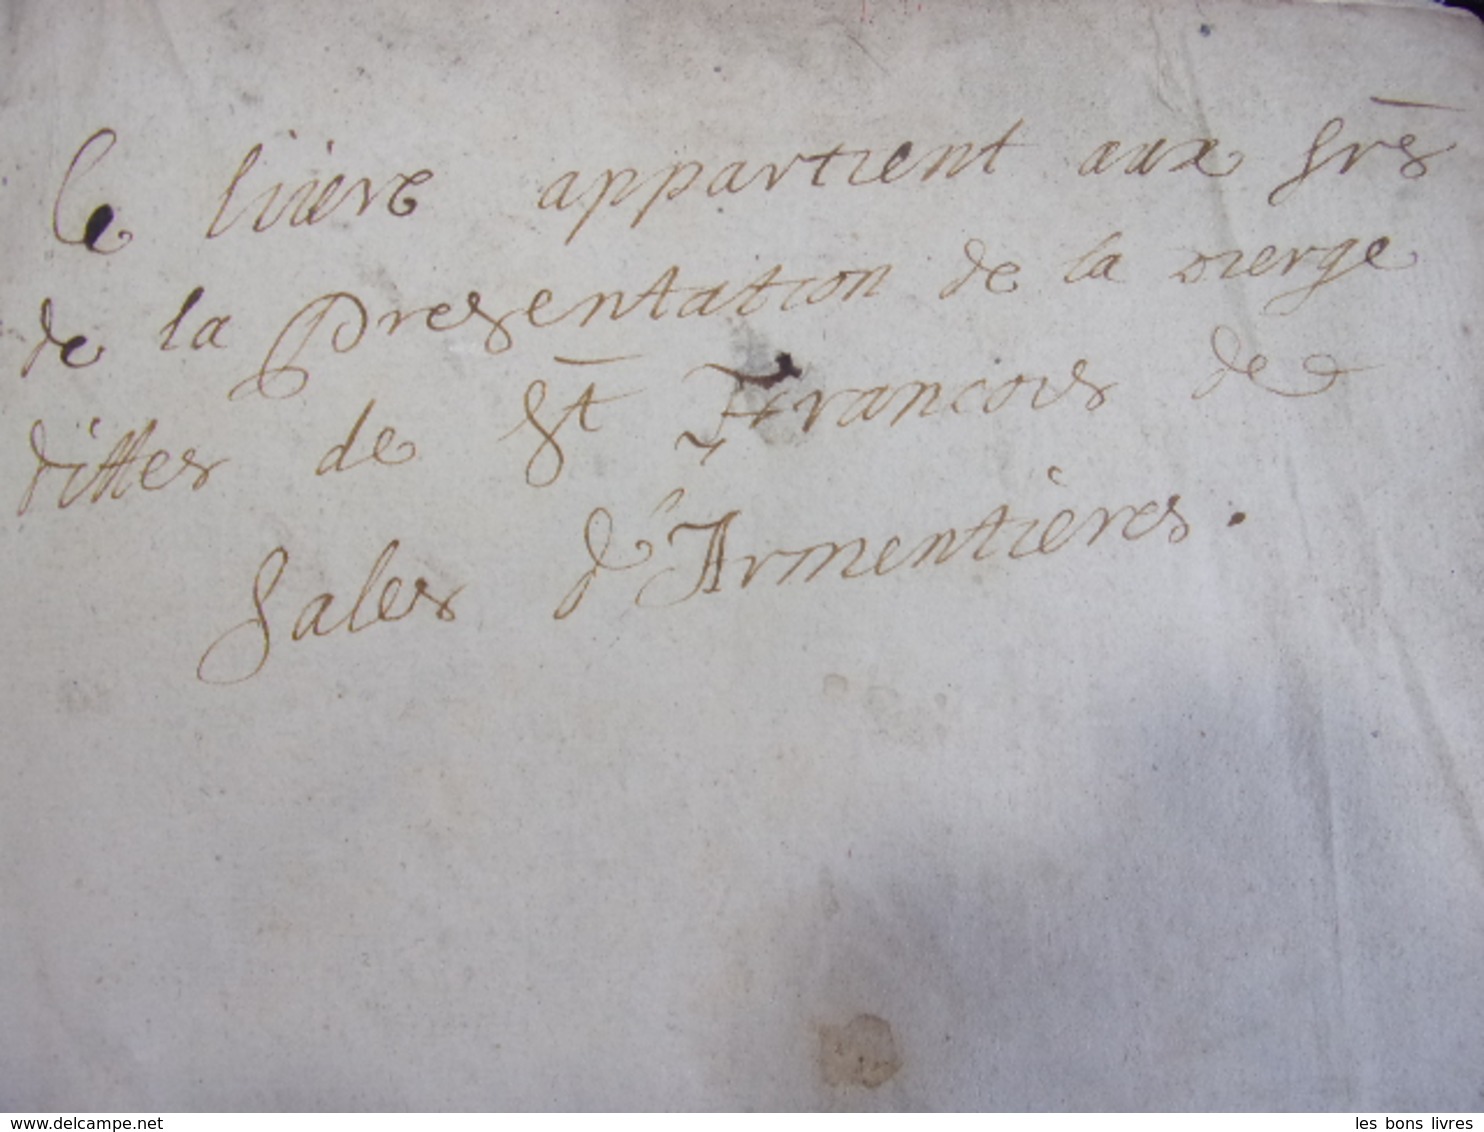 Ce liuere appartient aux srēs
de la Presentation de la vierge
dittes de St Francois de
sales d'Armentieres.
www.delcampe.net
les bons livres